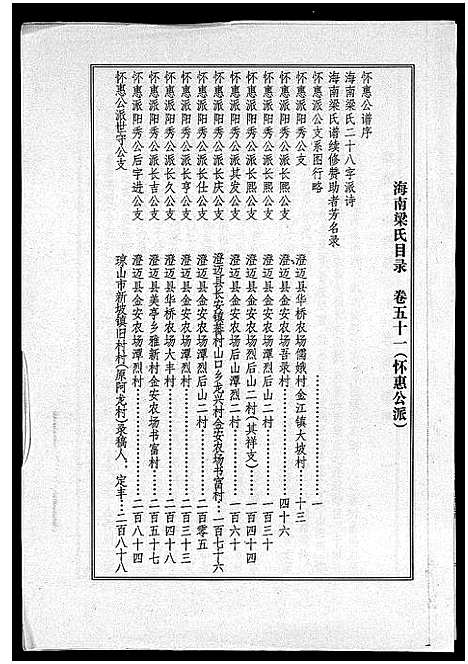 海南梁氏目录　卷五十一（怀惠公派）
怀惠公谱序
海南梁氏二十八字派诗
海南梁氏谱续修赞助者芳名录
怀惠派公支系图行略……一
怀惠派阳秀公支　澄迈县华桥农场儒娥村金江镇大坡村……十三
怀惠派阳秀公派长熙公支　澄迈县金安农场吾录村……四十六
怀惠派阳秀公派长熙公支　澄迈县金安农场潭烈后山二村……一百三十
怀惠派阳秀公派长熙公支　澄迈县金安农场潭烈后山二村（其祥支）……一百四十四
怀惠派阳秀公派其发公支　澄迈县金安农场潭烈后山二村……一百六十
怀惠派阳秀公派长庆公支　澄迈县长安镇村山口乡龙兴村金安农场书富村……一百七十六
怀惠派阳秀公派长仕公支　澄迈县金安农场潭烈后山二村……二百零五
怀惠派阳秀公派长亨公支　澄迈县金安农场潭烈村……二百三十三
怀惠派阳秀公派长久公支　澄迈县华桥农场大丰村……二百四十八
怀惠派阳秀公派长吉公支　澄迈县美亭乡雅新村金安农场书富村……二百五十七
怀惠派阳秀公后字进公支　澄迈县金安农场潭烈村……二百八十四
怀惠公派世守公支　琼山市新坡镇旧村村（原阿龙村）录稿人、定丰……二百八十八